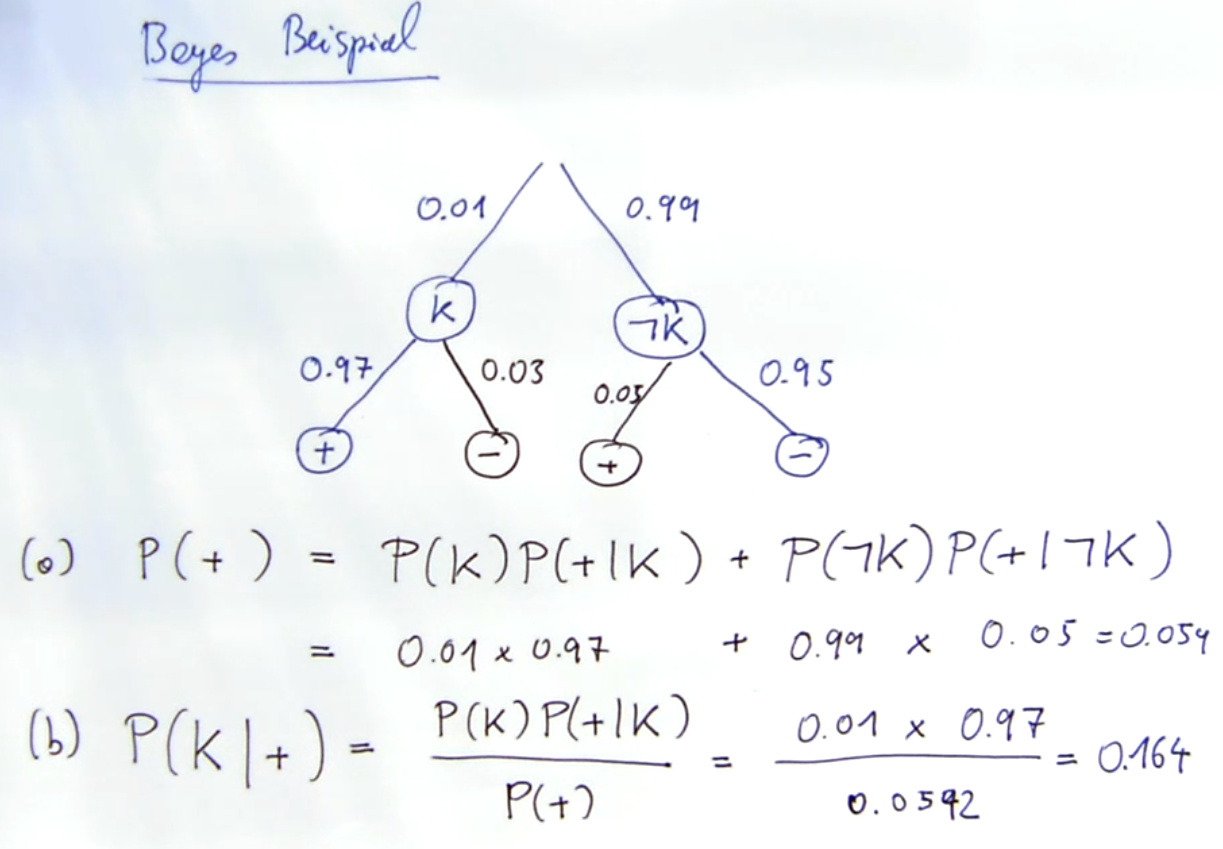 Bayes Beispiel
0.01 0.99
K ¬K
0.97 0.03 0.05 0.95
+ − + −
(a) P(+) = P(K)P(+|K) + P(¬K)P(+|¬K)
= 0.01 x 0.97 + 0.99 x 0.05 = 0.059
(b) P(K|+) = P(K)P(+|K) / P(+) = 0.01 x 0.97 / 0.0592 = 0.164